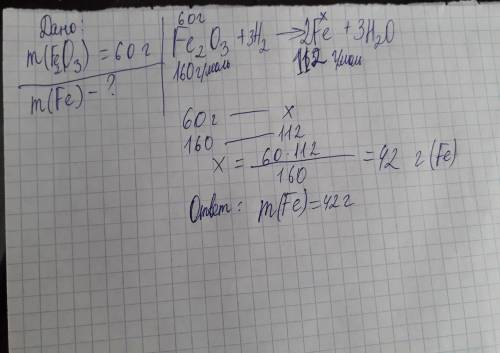 Дано:
m(Fe2O3) = 60 г
m(Fe) - ?
60 г x
Fe2O3 + 3H2 → 2Fe + 3H2O
160 г/моль 112 г/моль
60 г — x
160 — 112
x = 60 · 112 / 160 = 42 г (Fe)
Ответ: m(Fe) = 42 г